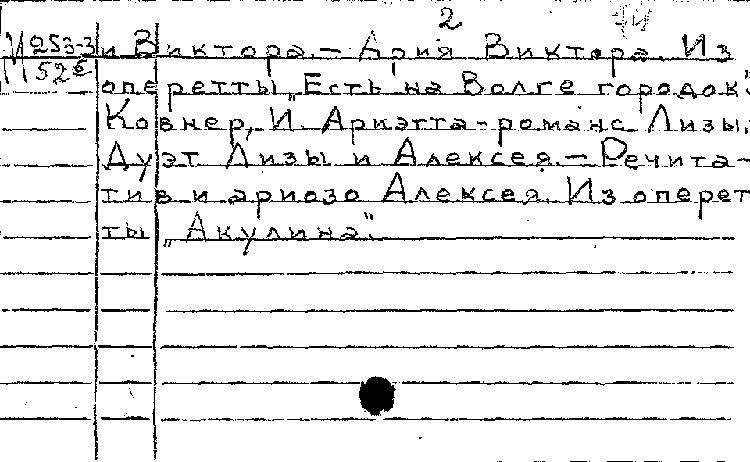 2
М 253-3 и Виктора. – Ария Виктора. Из
52е оперетты „Есть на Волге городок".
Ковнер, И. Ариэтта-романс Лизы.
Дуэт Лизы и Алексея. – Речита-
тив и ариозо Алексея. Из оперет
ты „Акулина".